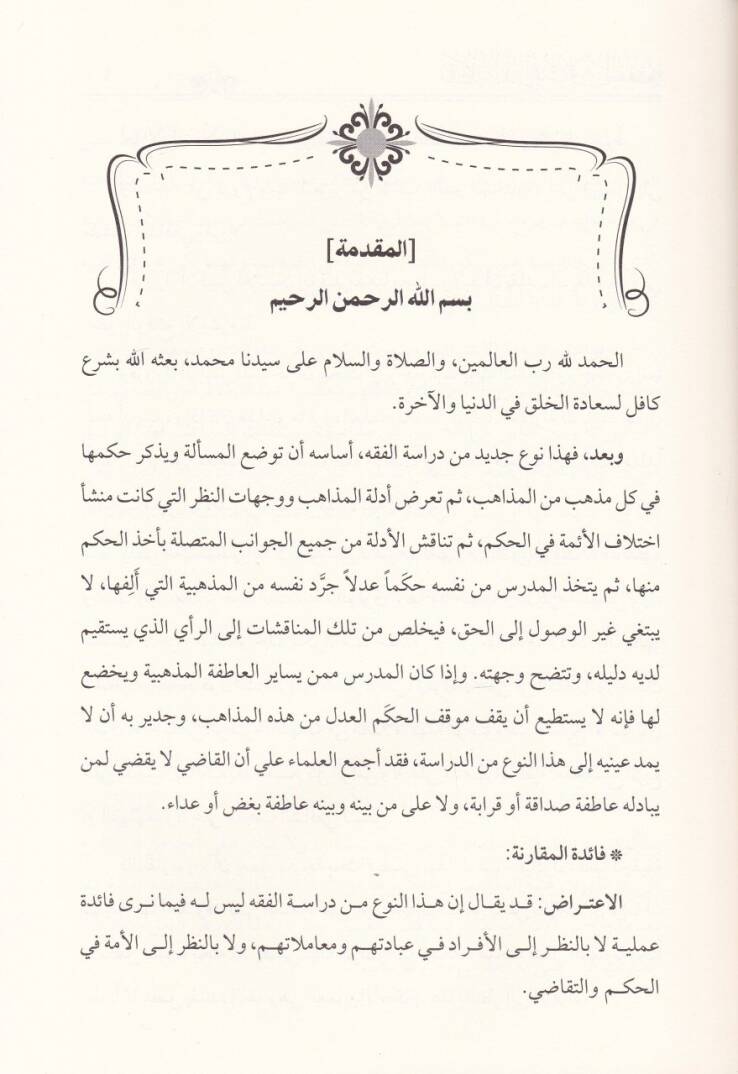 [المقدمة]
بسم الله الرحمن الرحيم
الحمد لله رب العالمين، والصلاة والسلام على سيدنا محمد، بعثه الله بشرع
كافل لسعادة الخلق في الدنيا والآخرة.
وبعد، فهذا نوع جديد من دراسة الفقه، أساسه أن توضع المسألة ويذكر حكمها
في كل مذهب من المذاهب، ثم تعرض أدلة المذاهب ووجهات النظر التي كانت منشأ
اختلاف الأئمة في الحكم، ثم تناقش الأدلة من جميع الجوانب المتصلة بأخذ الحكم
منها، ثم يتخذ المدرس من نفسه حكَماً عدلاً جرَّد نفسه من المذهبية التي أَلِفها، لا
يبتغي غير الوصول إلى الحق، فيخلص من تلك المناقشات إلى الرأي الذي يستقيم
لديه دليله، وتتضح وجهته. وإذا كان المدرس ممن يساير العاطفة المذهبية ويخضع
لها فإنه لا يستطيع أن يقف موقف الحكَم العدل من هذه المذاهب، وجدير به أن لا
يمد عينيه إلى هذا النوع من الدراسة، فقد أجمع العلماء علي أن القاضي لا يقضي لمن
يبادله عاطفة صداقة أو قرابة، ولا على من بينه وبينه عاطفة بغض أو عداء.
* فائدة المقارنة:
الاعتراض: قد يقال إن هذا النوع من دراسة الفقه ليس له فيما نرى فائدة
عملية لا بالنظر إلى الأفراد في عبادتهم ومعاملاتهم، ولا بالنظر إلى الأمة في
الحكم والتقاضي.